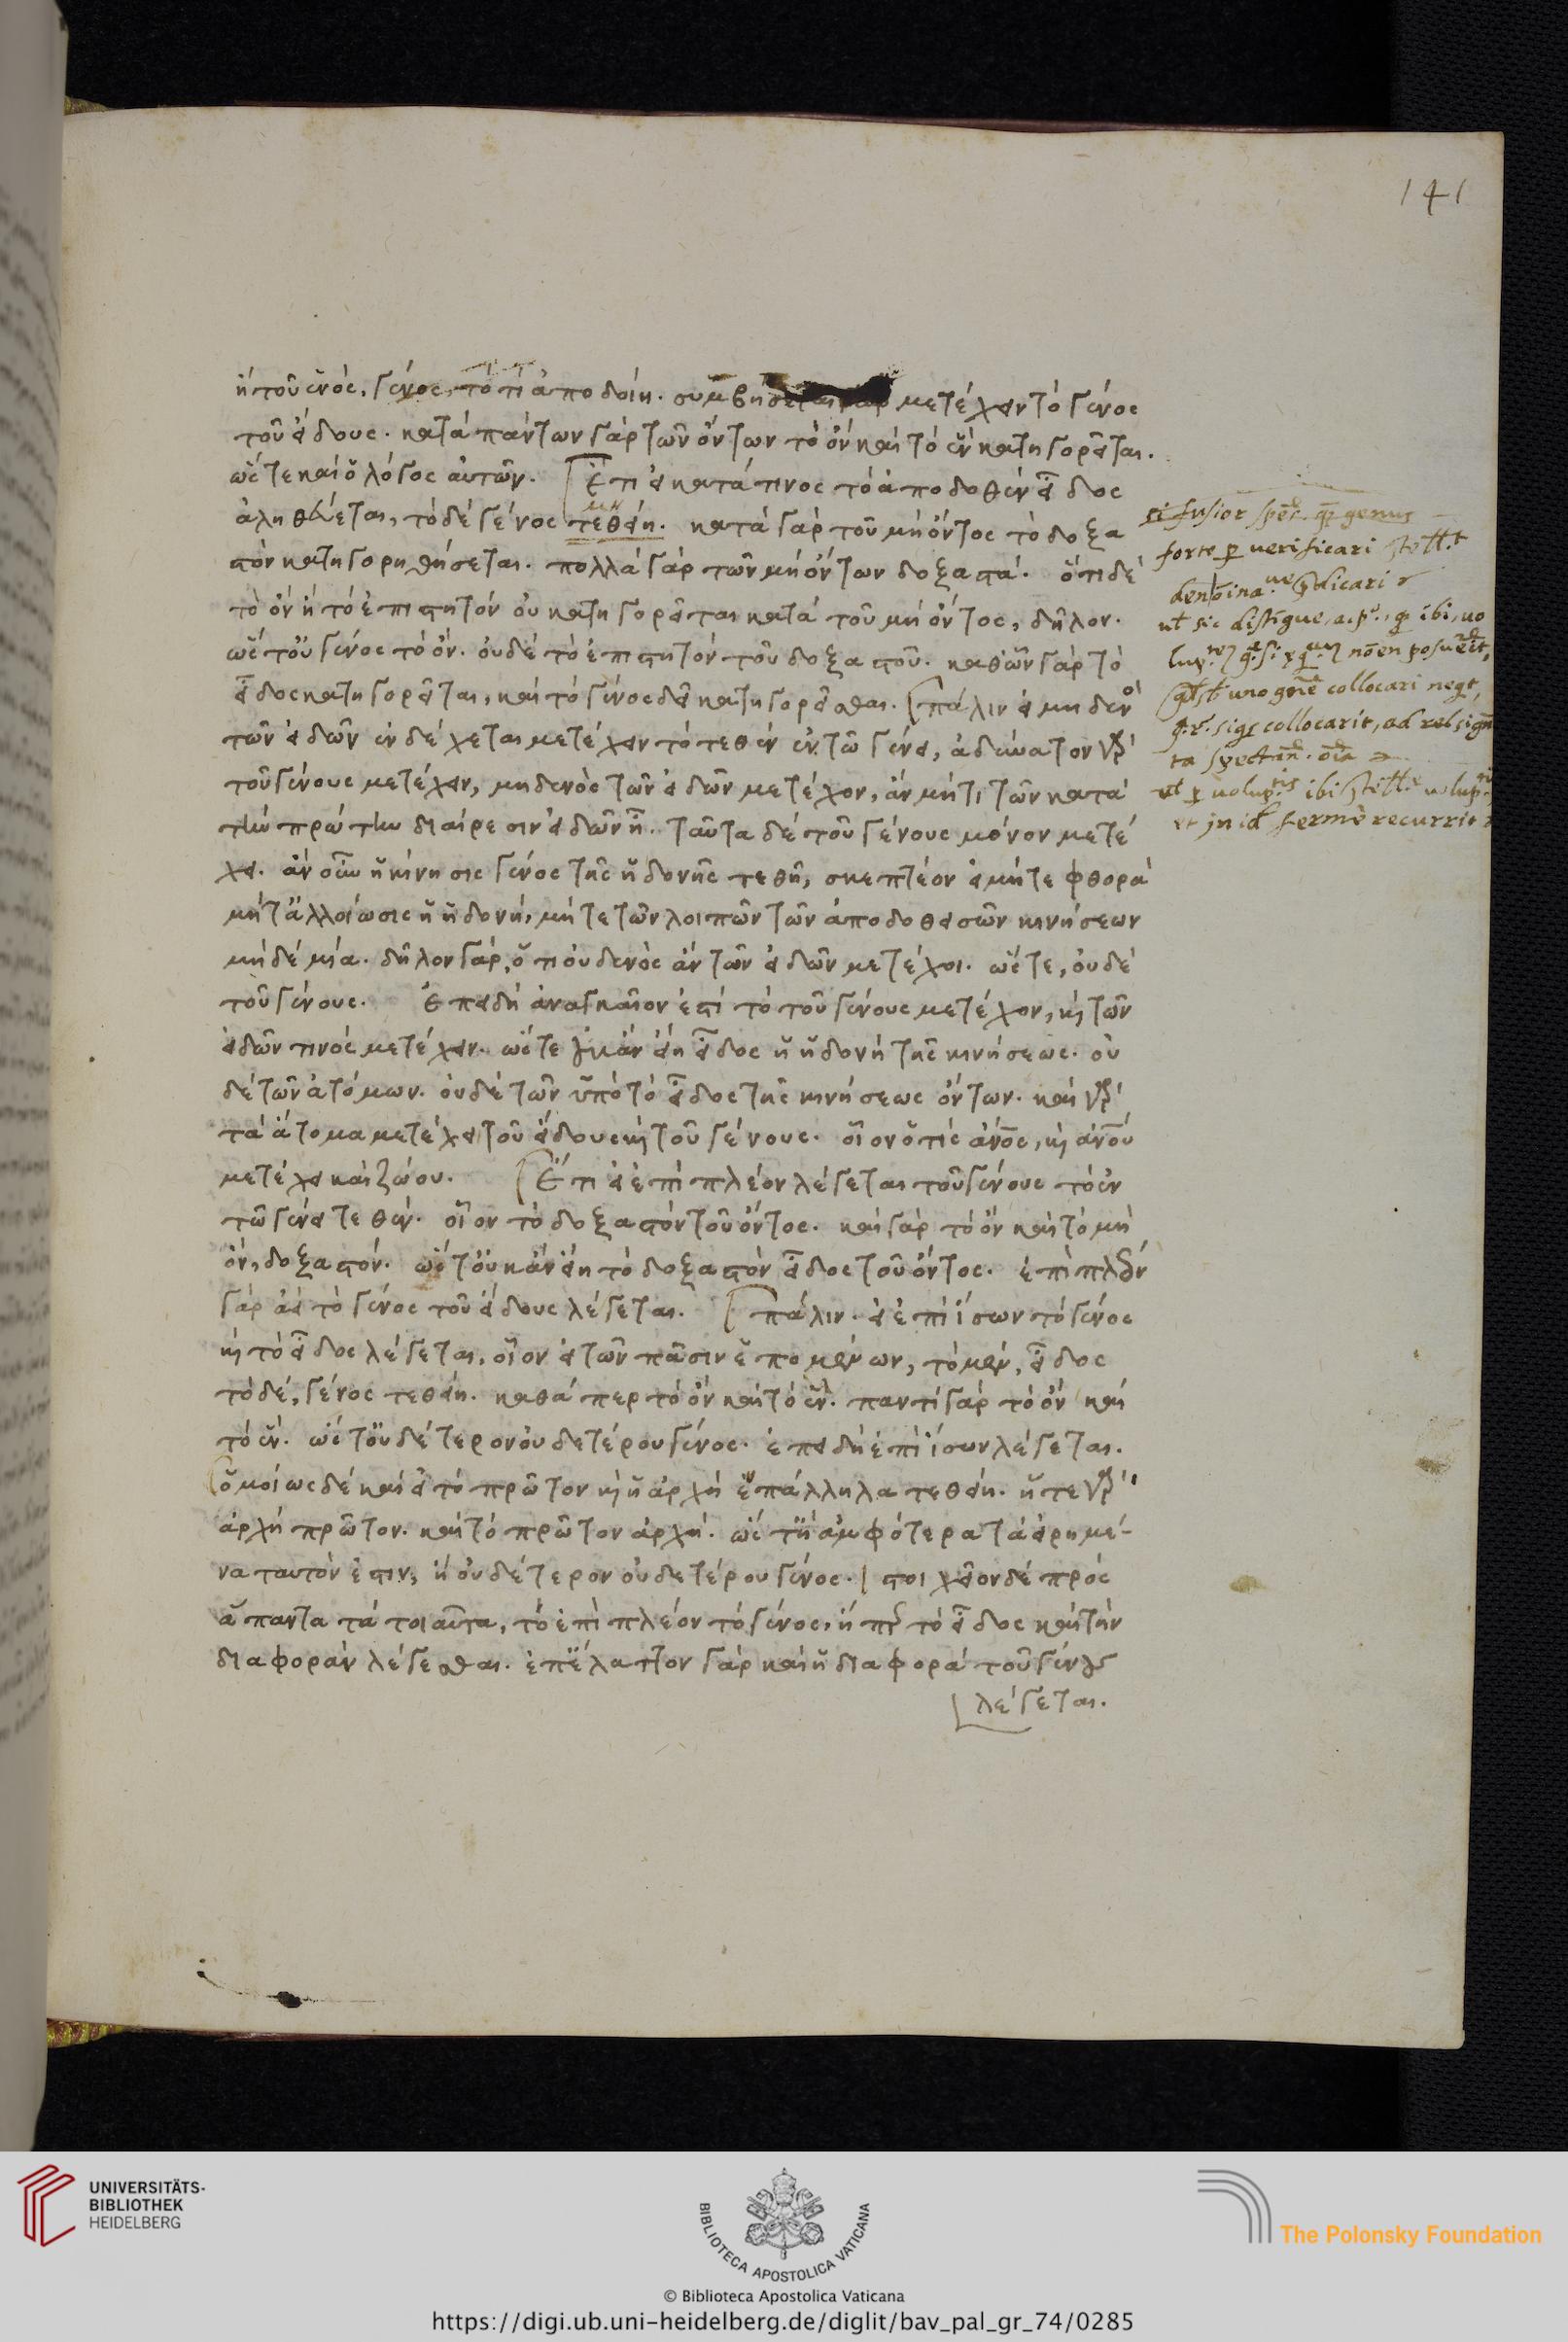 141
ἢ τοῦ ἑνὸς, γένος, τὸ τί ἀποδοίη. συμβήσεται γὰρ μετέχειν τὸ γένος
τοῦ εἴδους. κατὰ πάντων γὰρ τῶν ὄντων τὸ ὂν καὶ τὸ ἓν κατηγορεῖται.
ὥστε καὶ ὁ λόγος αὐτῶν. Ἔτι εἰ κατά τινος τὸ ἀποδοθὲν εἶδος
ἀληθεύεται, τὸ δὲ γένος τεθείη. κατὰ γὰρ τοῦ μὴ ὄντος τὸ δοξα
μὴ
στὸν κατηγορηθήσεται. πολλὰ γὰρ τῶν μὴ ὄντων δοξαστά. ὅτι δὲ
τὸ ὂν ἢ τὸ ἐπιστητὸν οὐ κατηγορεῖται κατὰ τοῦ μὴ ὄντος, δῆλον.
ὥστ' οὐ γένος τὸ ὂν. οὐδὲ τὸ ἐπιστητὸν τοῦ δοξαστοῦ. καθ' ὧν γὰρ τὸ
εἶδος κατηγορεῖται, καὶ τὸ γένος δεῖ κατηγορεῖσθαι. πάλιν εἰ μηδενὸς
τῶν εἰδῶν ἐνδέχεται μετέχειν τὸ τεθὲν ἐν τῶ γένει, ἀδύνατον γὰρ
τοῦ γένους μετέχειν, μηδενὸς τῶν εἰδῶν μετέχον, ἂν μή τι τῶν κατὰ
τὴν πρώτην διαίρεσιν εἰδῶν ἦ. ταῦτα δὲ τοῦ γένους μόνον μετέ
χει. ἂν οὖν ἡ κίνησις γένος τῆς ἡδονῆς τεθῆ, σκεπτέον εἰ μήτε φθορὰ
μήτ' ἀλλοίωσις ἡ ἡδονὴ, μήτε τῶν λοιπῶν τῶν ἀποδοθεισῶν κινήσεων
μὴδὲ μία. δῆλον γὰρ, ὅτι οὐδενὸς ἂν τῶν εἰδῶν μετέχοι. ὥστε, οὐδὲ
τοῦ γένους. Ἐπειδὴ ἀναγκαῖον ἐστὶ τὸ τοῦ γένους μετέχον, καὶ τῶν
εἰδῶν τινὸς μετέχειν. ὥστε οὐκ ἂν εἴη εἶδος ἡ ἡδονὴ τῆς κινήσεως. οὐ
δὲ τῶν ἀτόμων. οὐδὲ τῶν ὑπὸ τὸ εἶδος τῆς κινήσεως ὄντων. καὶ γὰρ
τὰ ἄτομα μετέχει τοῦ εἴδους καὶ τοῦ γένους. οἷον ὅ τις ἄνος, καὶ ἀνου
μετέχει καὶ ζώου. Ἔτι εἰ ἐπὶ πλέον λέγεται τοῦ γένους τὸ ἐν
τῶ γένει τεθὲν. οἷον τὸ δοξαστὸν τοῦ ὄντος. καὶ γὰρ τὸ ὂν καὶ τὸ μὴ
ὂν, δοξαστόν. ὥστ' οὐκ ἂν εἴη τὸ δοξαστὸν εἶδος τοῦ ὄντος. ἐπὶ πλέον
γὰρ ἀεὶ τὸ γένος τοῦ εἴδους λέγεται. πάλιν. εἰ ἐπὶ ἴσων τὸ γένος
καὶ τὸ εἶδος λέγεται. οἷον εἰ τῶν πᾶσιν ἑπομένων, τὸ μὲν, εἶδος
τὸ δὲ, γένος τεθείη. καθάπερ τὸ ὂν καὶ τὸ ἓν. παντὶ γὰρ τὸ ὂν καὶ
τὸ ἓν. ὥστ' οὐδέτερον οὐδετέρου γένος. ἐπειδὴ ἐπὶ ἴσων λέγεται.
ὁμοίως δὲ καὶ εἰ τὸ πρῶτον καὶ ἡ ἀρχὴ ὑπάλληλα τεθείη. ἥ τε γὰρ
ἀρχὴ πρῶτον. καὶ τὸ πρῶτον ἀρχή. ὥστ' ἢ ἀμφότερα τὰ εἰρημέ-
να ταυτόν ἐστιν, ἢ οὐδέτερον οὐδετέρου γένος. στοιχεῖον δὲ πρὸς
ἅπαντα τὰ τοιαῦτα, τὸ ἐπὶ πλέον τὸ γένος, ἤπερ τὸ εἶδος καὶ τὴν
διαφορὰν λέγεσθαι. ἐπ' ἔλαττον γὰρ καὶ ἡ διαφορὰ τοῦ γένους
λέγεται.
si fusior genus
forte verificari
ut sic distigue, ibi, uo
uno collocari neqt,
collocarit, ad
ibi
in id fermè recurrit
UNIVERSITÄTS-
BIBLIOTHEK
HEIDELBERG
BIBLIOTECA APOSTOLICA VATICANA
The Polonsky Foundation
© Biblioteca Apostolica Vaticana
https://digi.ub.uni-heidelberg.de/diglit/bav_pal_gr_74/0285